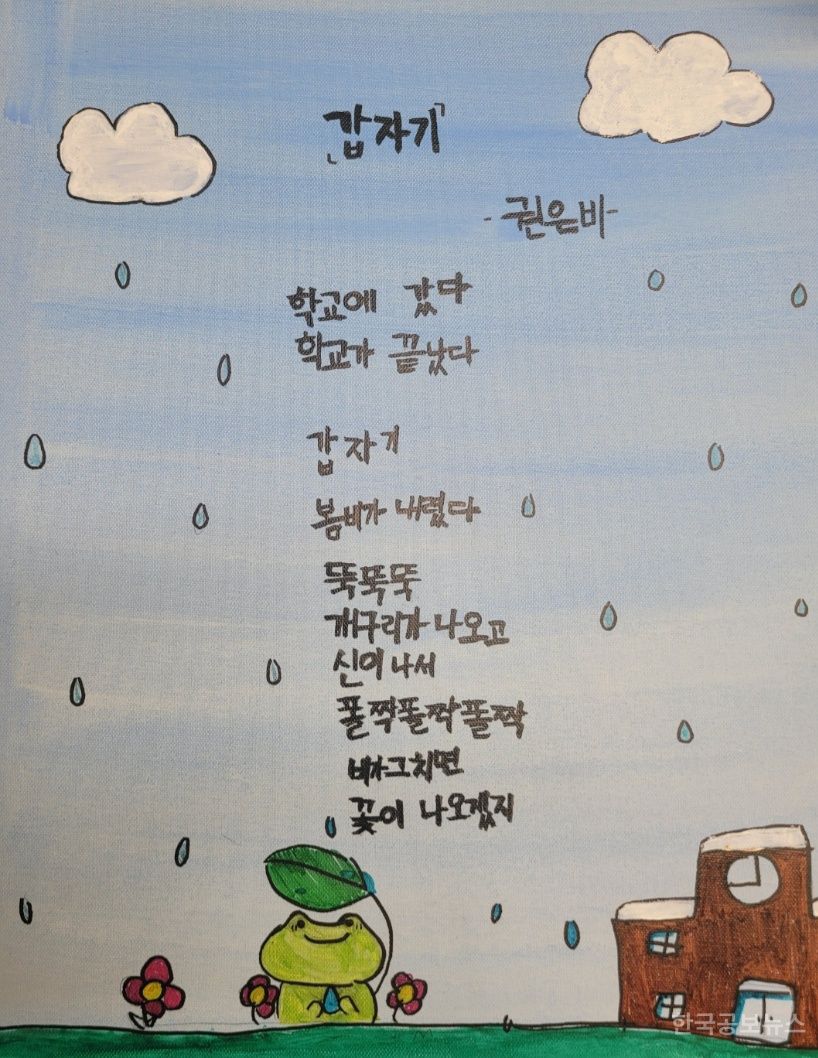 「갑자기」
-권은비-
학교에 갔다
학교가 끝났다
갑자기
봄비가 내렸다
뚝뚝뚝
개구리가 나오고
신이 나서
폴짝폴짝폴짝
비가 그치면
꽃이 나오겠지
한국공보뉴스